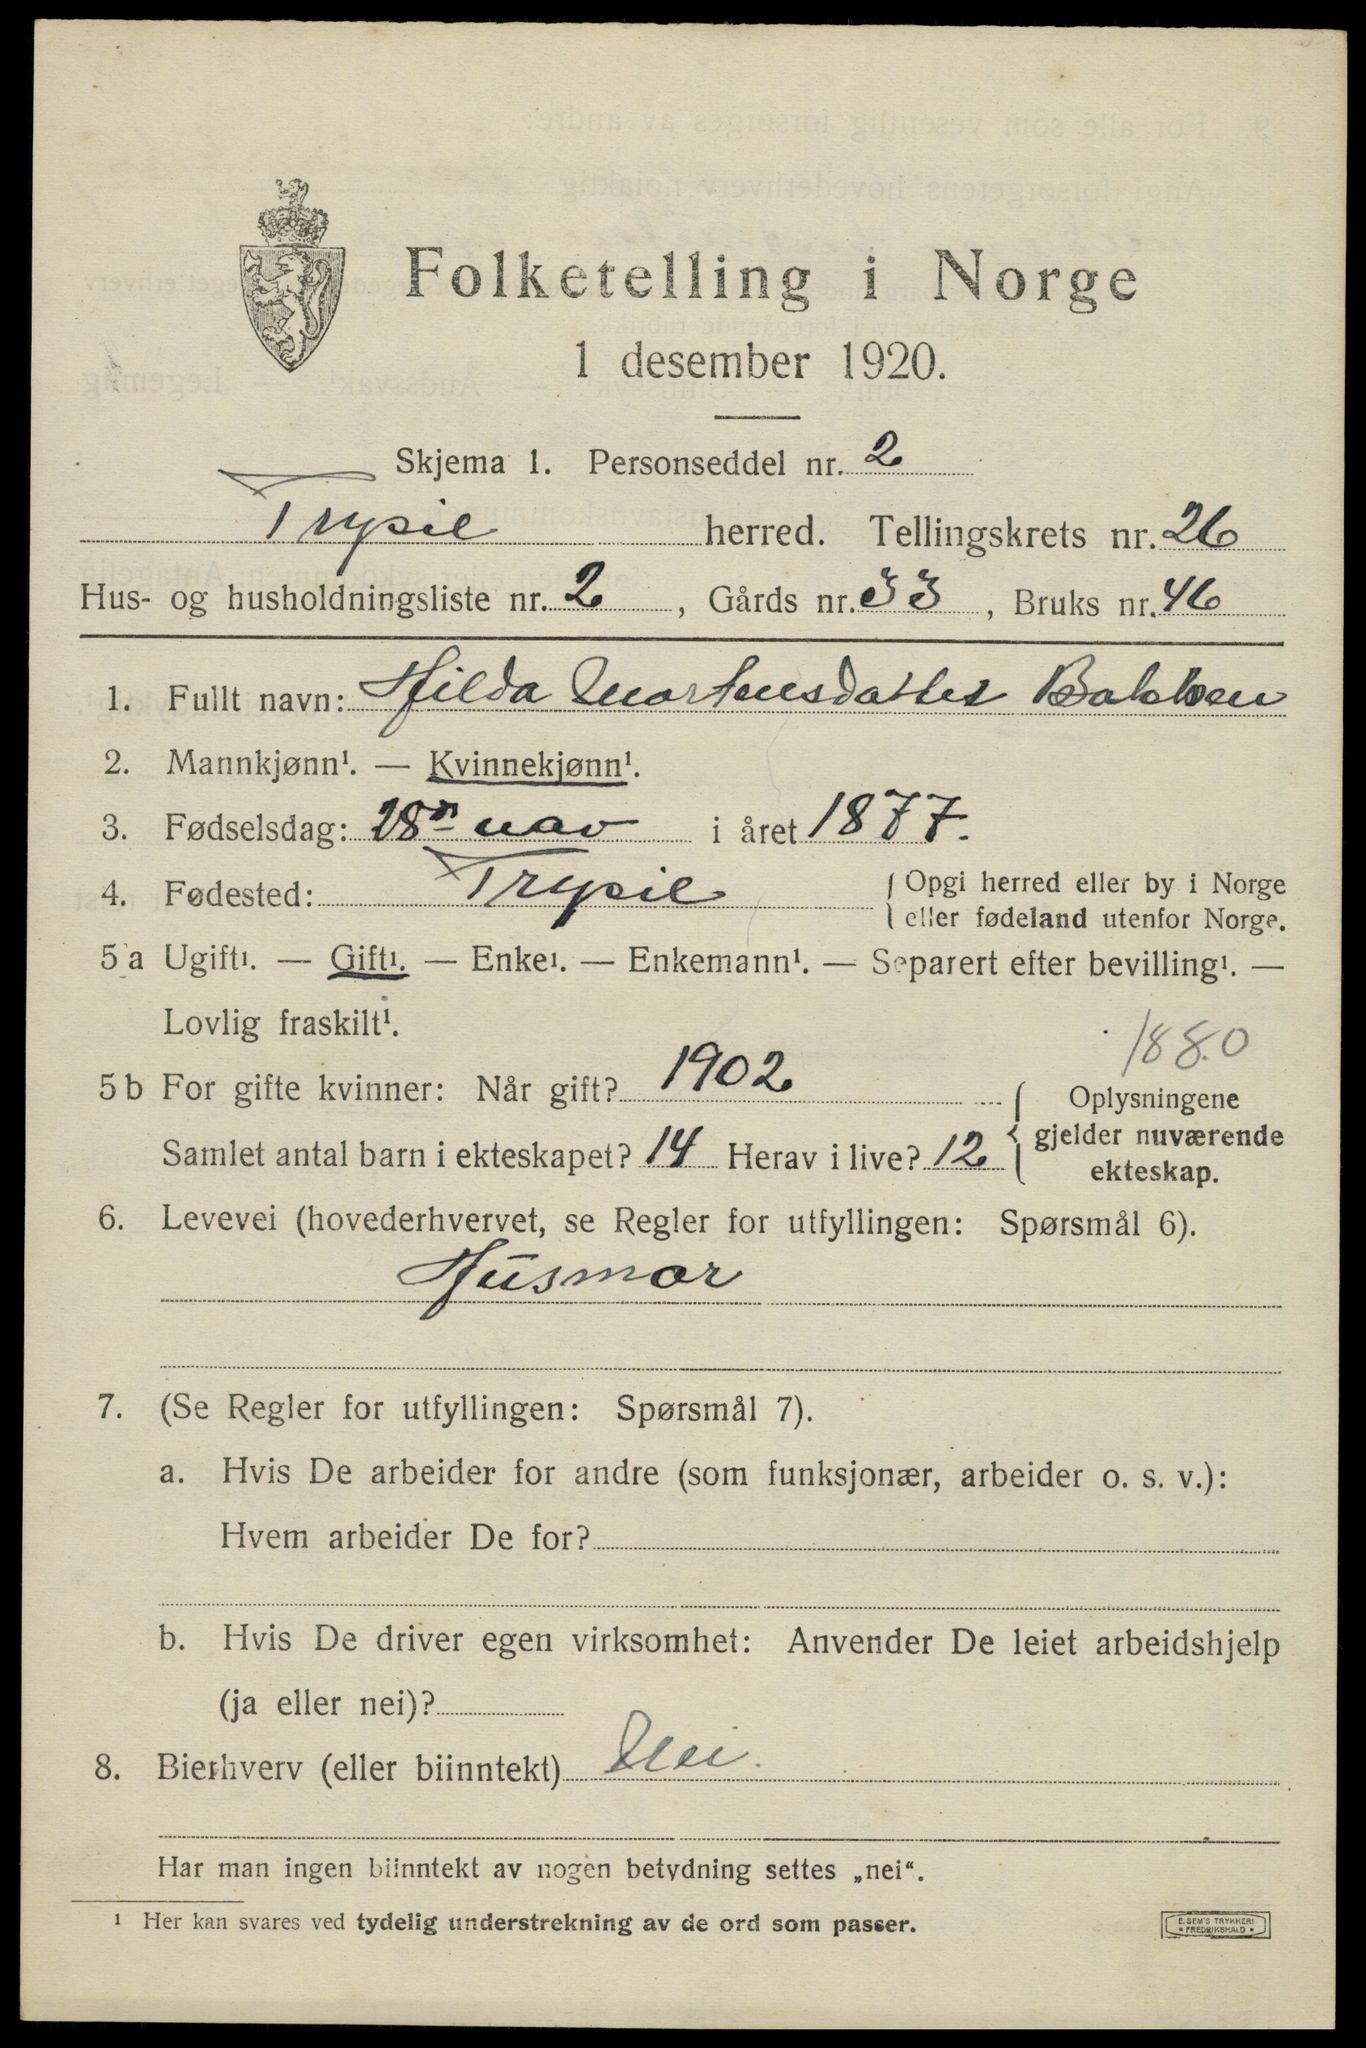 Folketelling i Norge
1 desember 1920.
Skjema 1. Personseddel nr. 2
Trysil herred. Tellingskrets nr. 26
Hus- og husholdningsliste nr. 2, Gårds nr. 33, Bruks nr. 46
1. Fullt navn: Hilda Mortensdatter Bakken
2. Mannkjønn¹. — Kvinnekjønn¹.
3. Fødselsdag: 28de nov i året 1877.
4. Fødested: Trysil { Opgi herred eller by i Norge
eller fødeland utenfor Norge.
5 a Ugift¹. — Gift¹. — Enke¹. — Enkemann¹. — Separert efter bevilling¹. —
Lovlig fraskilt¹.
1880
5 b For gifte kvinner: Når gift? 1902 { Oplysningene
gjelder nuværende
Samlet antal barn i ekteskapet? 14 Herav i live? 12
ekteskap.
6. Levevei (hovederhvervet, se Regler for utfyllingen: Spørsmål 6).
Husmor
7. (Se Regler for utfyllingen: Spørsmål 7).
a. Hvis De arbeider for andre (som funksjonær, arbeider o. s. v.):
Hvem arbeider De for?
b. Hvis De driver egen virksomhet: Anvender De leiet arbeidshjelp
(ja eller nei)?
8. Bierhverv (eller biinntekt) Nei.
Har man ingen biinntekt av nogen betydning settes „nei“.
¹ Her kan svares ved tydelig understrekning av de ord som passer.
E. SEM'S TRYKKERI
FREDRIKSHALD